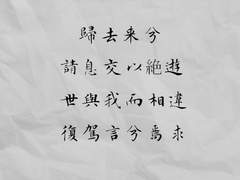 歸去来兮
請息交以絶遊
世與我而相違
復駕言兮焉求